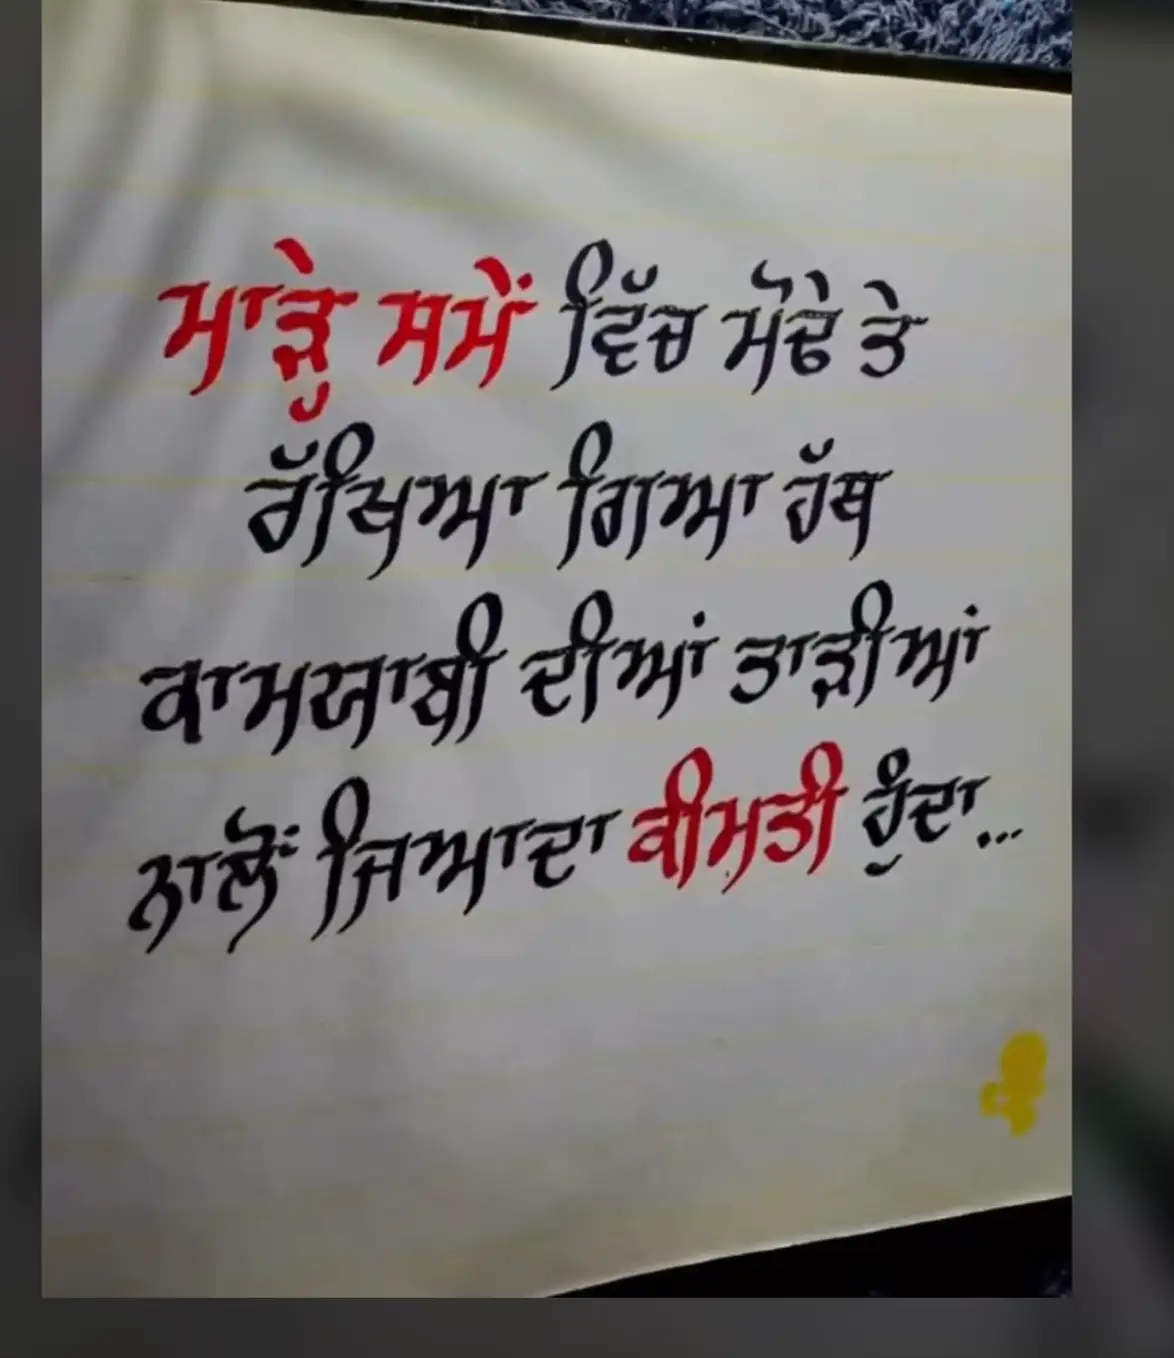 ਮਾੜੇ ਸਮੇਂ ਵਿੱਚ ਮੋਢੇ ਤੇ
ਰੱਖਿਆ ਗਿਆ ਹੱਥ
ਕਾਮਯਾਬੀ ਦੀਆਂ ਤਾੜੀਆਂ
ਨਾਲੋਂ ਜਿਆਦਾ ਕੀਮਤੀ ਹੁੰਦਾ...